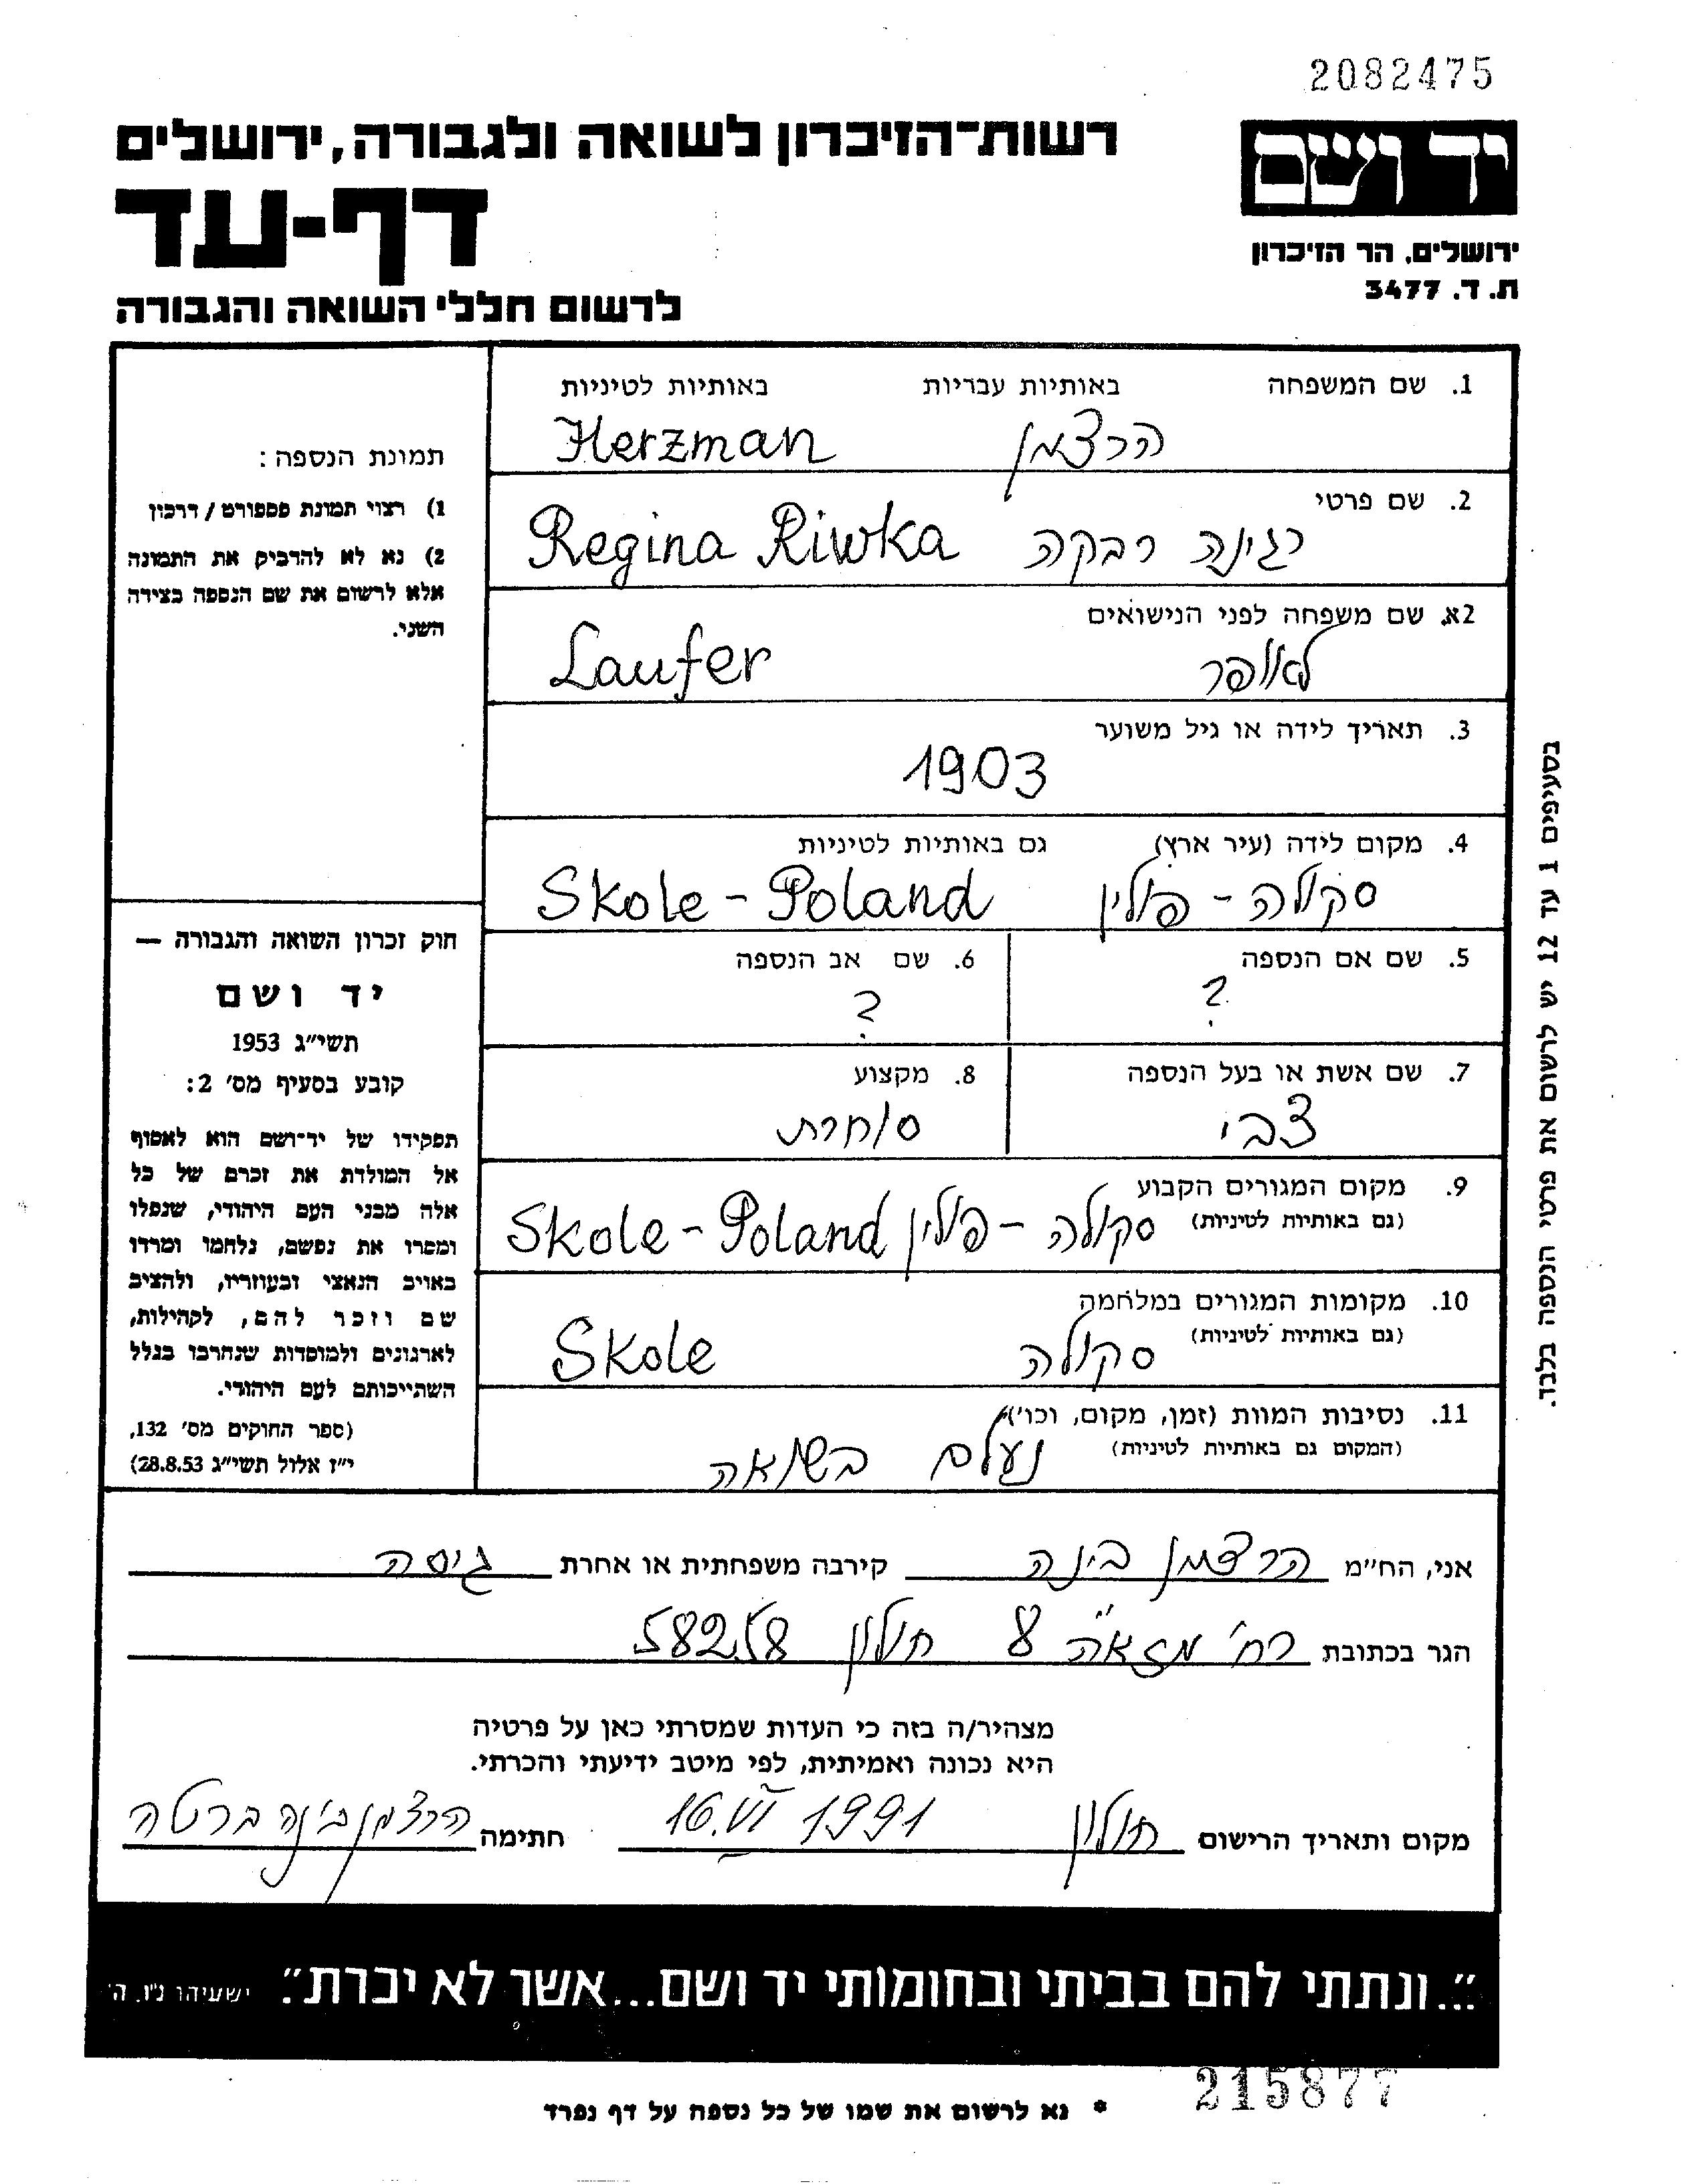 2082475
רשות־הזיכרון לשואה ולגבורה, ירושלים
יד ושם
דף-עד
ירושלים, הר הזיכרון
ת. ד. 3477
לרשום חללי השואה והגבורה
1. שם המשפחה באותיות עבריות באותיות לטיניות
הרצמן Herzman
2. שם פרטי
רגינה רבקה Regina Riwka
2א. שם משפחה לפני הנישואים
לאופר Laufer
3. תאריך לידה או גיל משוער
1903
4. מקום לידה (עיר ארץ) גם באותיות לטיניות
סקולה - פולין Skole - Poland
5. שם אם הנספה 6. שם אב הנספה
? ?
7. שם אשת או בעל הנספה 8. מקצוע
צבי סוחרת
9. מקום המגורים הקבוע
(גם באותיות לטיניות) סקולה - פולין Skole - Poland
10. מקומות המגורים במלחמה
(גם באותיות לטיניות) סקולה Skole
11. נסיבות המוות (זמן, מקום, וכו')
(המקום גם באותיות לטיניות) נעלם בשואה
תמונת הנספה:
1) רצוי תמונת פספורט / דרכון
2) נא לא להדביק את התמונה
אלא לרשום את שם הנספה בצידה
השני.
חוק זכרון השואה והגבורה —
יד ושם
תשי"ג 1953
קובע בסעיף מס' 2:
תפקידו של יד־ושם הוא לאסוף
אל המולדת את זכרם של כל
אלה מבני העם היהודי, שנפלו
ומסרו את נפשם, נלחמו ומרדו
באויב הנאצי ובעוזריו, ולהציב
שם וזכר להם, לקהילות,
לארגונים ולמוסדות שנחרבו בגלל
השתייכותם לעם היהודי.
(ספר החוקים מס' 132,
י"ז אלול תשי"ג 28.8.53)
בסעיפים 1 עד 12 יש לרשום את פרטי הנספה בלבד.
אני, הח"מ הרצמן בינה קירבה משפחתית או אחרת גיסה
הגר בכתובת רח' מזא"ה 8 חולון 58258
מצהיר/ה בזה כי העדות שמסרתי כאן על פרטיה
היא נכונה ואמיתית, לפי מיטב ידיעתי והכרתי.
מקום ותאריך הרישום חולון 16.VI 1991 חתימה הרצמן בינה ברטה
"...ונתתי להם בביתי ובחומותי יד ושם...אשר לא יכרת". ישעיהו נ"ו, ה'
215877
* נא לרשום את שמו של כל נספה על דף נפרד